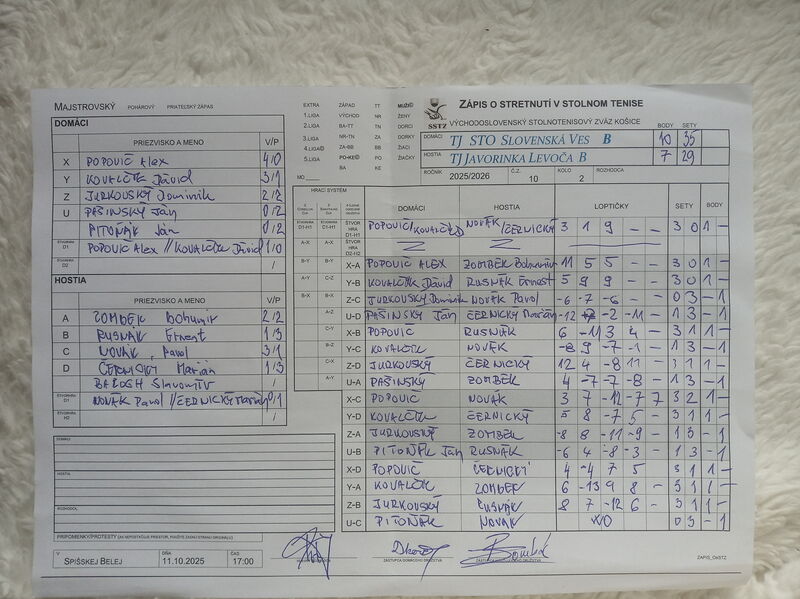 MAJSTROVSKÝ POHÁROVÝ PRIATEĽSKÝ ZÁPAS
DOMÁCI
PRIEZVISKO A MENO V/P
X POPOVIČ Alex 4/0
Y KOVALČÍK Dávid 3/1
Z JURKOVSKÝ Dominik 2/2
U PAŠINSKÝ Ján 0/2
PITOŇÁK Ján 0/2
ŠTVORHRA D1 POPOVIČ Alex // KOVALČÍK Dávid 1/0
ŠTVORHRA D2 /
HOSTIA
PRIEZVISKO A MENO V/P
A ZOMBEK Bohumír 2/2
B RUSNÁK Ernest 1/3
C NOVÁK Pavol 3/1
D ČERNICKÝ Marián 1/3
BAROSH Slavomír /
ŠTVORHRA D1 NOVÁK Pavol // ČERNICKÝ Marián 0/1
ŠTVORHRA H2 /
DOMÁCI:
HOSTIA:
ROZHODCA:
PRIPOMIENKY/PROTESTY (AK NEPOSTAČUJE PRIESTOR, POUŽITE ZADNÚ STRANU ORIGINÁLU)
V SPIŠSKEJ BELEJ DŇA 11.10.2025 ČAS 17:00
EXTRA ZÁPAD TT MUŽI
1.LIGA VÝCHOD NR ŽENY
2.LIGA BA-TT TN DORCI
3.LIGA NR-TN ZA DORKY
4.LIGA ZA-BB BB ŽIACI
5.LIGA PO-KE PO ŽIAČKY
BA KE
MO
SSTZ
ZÁPIS O STRETNUTÍ V STOLNOM TENISE
VÝCHODOSLOVENSKÝ STOLNOTENISOVÝ ZVÄZ KOŠICE
BODY SETY
DOMÁCI TJ STO SLOVENSKÁ VES B 10 35
HOSTIA TJ JAVORINKA LEVOČA B 7 29
ROČNÍK 2025/2026 Č.Z. 10 KOLO 2 ROZHODCA
HRACÍ SYSTÉM
DOMÁCI HOSTIA LOPTIČKY SETY BODY
ŠTVORHRA D1-H1 POPOVIČ/KOVALČÍK NOVÁK/ČERNICKÝ 3 1 9 - - 3 0 1 -
ŠTVORHRA D2-H2
X-A POPOVIČ ALEX ZOMBEK Bohumír 11 5 5 - - 3 0 1 -
Y-B KOVALČÍK Dávid RUSNÁK Ernest 5 9 9 - - 3 0 1 -
Z-C JURKOVSKÝ Dominik NOVÁK Pavol -6 -7 -6 - - 0 3 - 1
U-D PAŠINSKÝ Ján ČERNICKÝ Marián -12 -2 -11 - 1 3 - 1
X-B POPOVIČ RUSNÁK 6 -11 3 4 - 3 1 1 -
Y-C KOVALČÍK NOVÁK -8 9 -7 -1 - 1 3 - 1
Z-D JURKOVSKÝ ČERNICKÝ 12 4 -8 11 - 3 1 1 -
U-A PAŠINSKÝ ZOMBEK 4 -7 -7 -8 - 1 3 - 1
X-C POPOVIČ NOVÁK 3 7 -12 -7 7 3 2 1 -
Y-D KOVALČÍK ČERNICKÝ 5 8 -7 5 - 3 1 1 -
Z-A JURKOVSKÝ ZOMBEK -8 8 -11 -9 - 1 3 - 1
U-B PITOŇÁK Ján RUSNÁK -6 4 -8 -3 - 1 3 - 1
X-D POPOVIČ ČERNICKÝ 4 -4 7 5 3 1 1 -
Y-A KOVALČÍK ZOMBEK 6 -13 9 8 - 3 1 1 -
Z-B JURKOVSKÝ RUSNÁK 8 7 -12 6 - 3 1 1 -
U-C PITOŇÁK NOVÁK WO 0 3 - 1
ZÁSTUPCA DOMÁCEHO DRUŽSTVA
ZÁPIS_OaSTZ